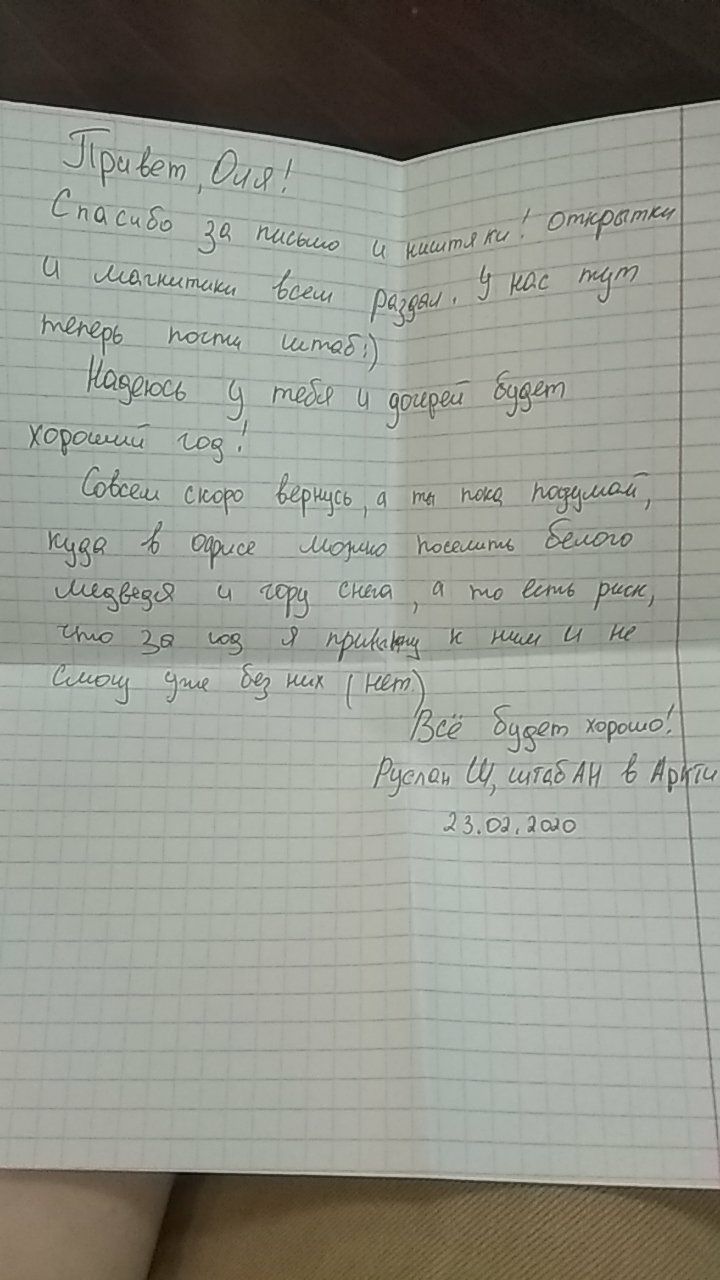 Привет, Оля!
Спасибо за письмо и ништяки! Открытки
и магнитики всем раздал. У нас тут
теперь почти штаб:)
Надеюсь у тебя и дочерей будет
хороший год!
Совсем скоро вернусь, а ты пока подумай,
куда в офисе можно поселить белого
медведя и гору снега, а то есть риск,
что за год я привыкну к ним и не
смогу уже без них (нет)
Всё будет хорошо!
Руслан Щ, штаб АН в Аркти
23.02.2020